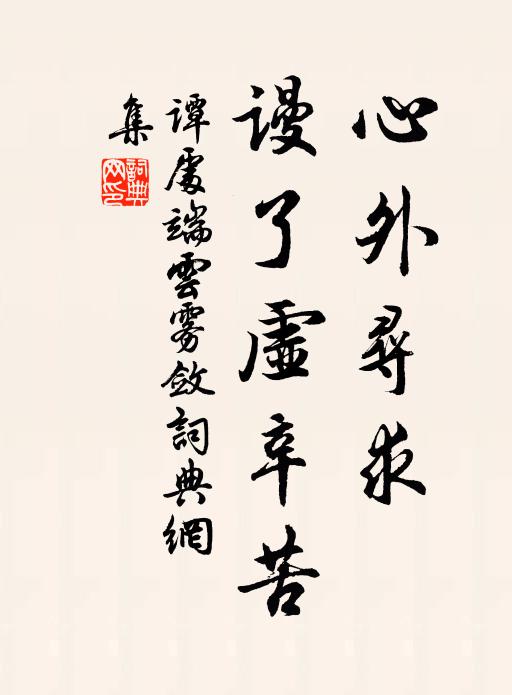 心外尋求
謾了虛辛苦
譚處端雲雾斂詞典網
集
詞典網印